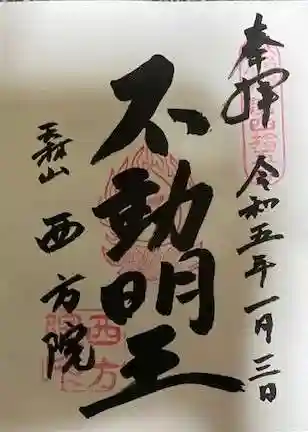 奉拝 令和五年一月三日
不動明王
山 西方院
西方院